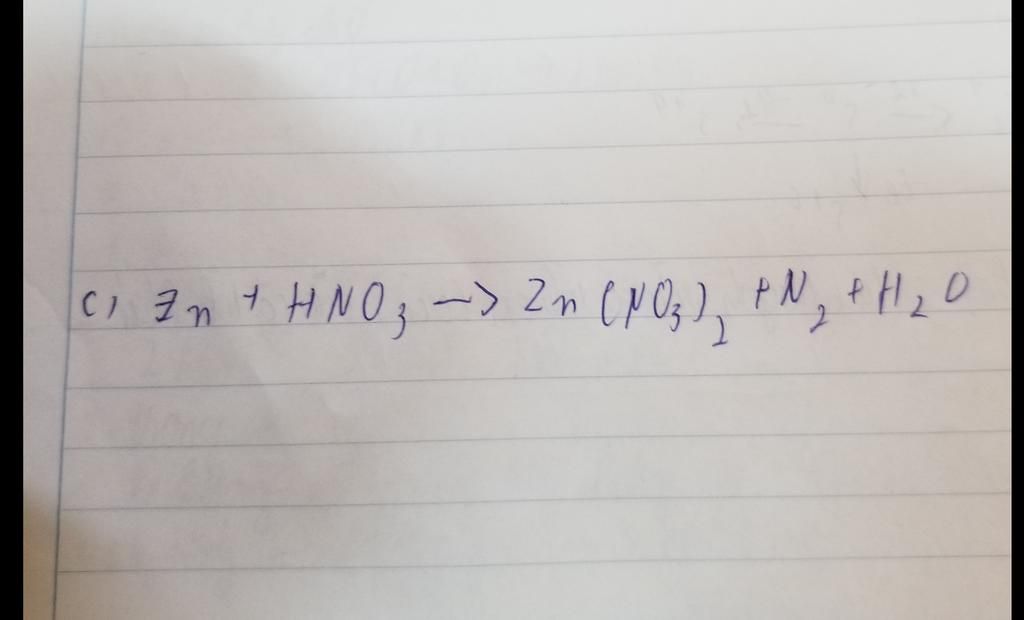 c) Zn + HNO₃ → Zn(NO₃)₂ + N₂ + H₂O